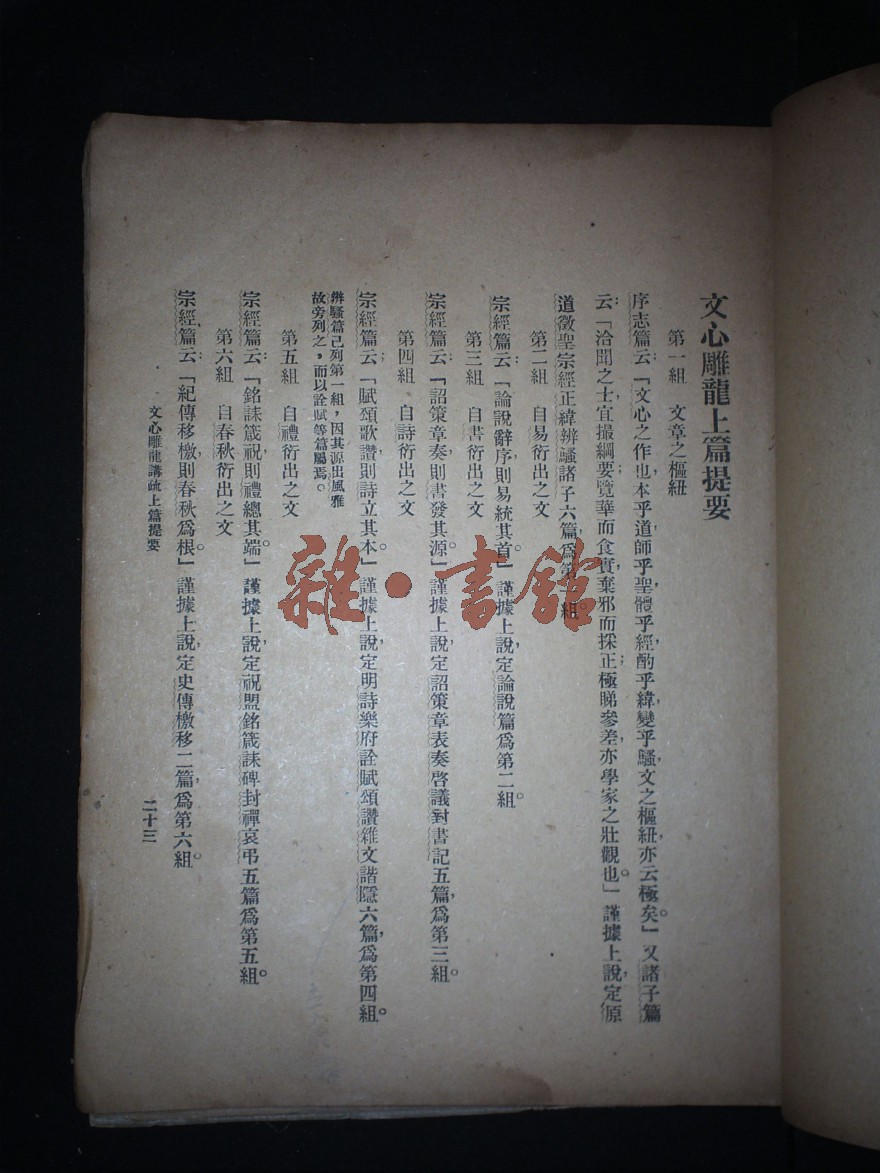 文心雕龍上篇提要
第一組　文章之樞紐
序志篇云：「文心之作也，本乎道，師乎聖，體乎經，酌乎緯，變乎騷，文之樞紐，亦云極矣。」又諸子篇
云：「洽聞之士，宜撮綱要，覽華而食實，棄邪而採正；極睇參差，亦學家之壯觀也。」謹據上說，定原
道徵聖宗經正緯辨騷諸子六篇，爲第一組。
第二組　自易衍出之文
宗經篇云：「論說辭序，則易統其首。」謹據上說，定論說篇爲第二組。
第三組　自書衍出之文
宗經篇云：「詔策章奏，則書發其源。」謹據上說，定詔策章表奏啓議對書記五篇，爲第三組。
第四組　自詩衍出之文
宗經篇云：「賦頌歌讚，則詩立其本。」謹據上說，定明詩樂府詮賦頌讚雜文諧隱六篇，爲第四組。
辨騷篇已列第一組，因其源出風雅
故旁列之，而以詮賦等篇屬焉。
第五組　自禮衍出之文
宗經篇云：「銘誄箴祝，則禮總其端。」謹據上說，定祝盟銘箴誄碑封禪哀弔五篇爲第五組。
第六組　自春秋衍出之文
宗經篇云：「紀傳移檄，則春秋爲根。」謹據上說，定史傳檄移二篇，爲第六組。
文心雕龍講疏上篇提要
二十三
雜·書館